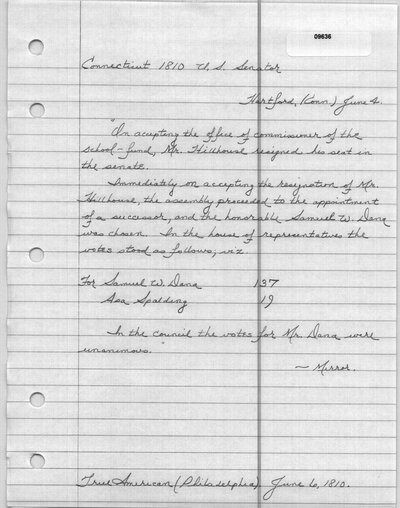 09636
Connecticut 1810 U.S. Senator
Hartford, (Conn.) June 4.
"In accepting the office of commissioner of the
school-fund, Mr. Hillhouse resigned his seat in
the senate.
Immediately on accepting the resignation of Mr.
Hillhouse, the assembly proceeded to the appointment
of a successor, and the honorable Samuel W. Dana
was chosen. In the house of representatives the
votes stood as follows, viz.
For Samuel W. Dana 137
Asa Spalding 19
In the council the votes for Mr. Dana were
unanimous."
— Mirror.
True American (Philadelphia) June 6, 1810.